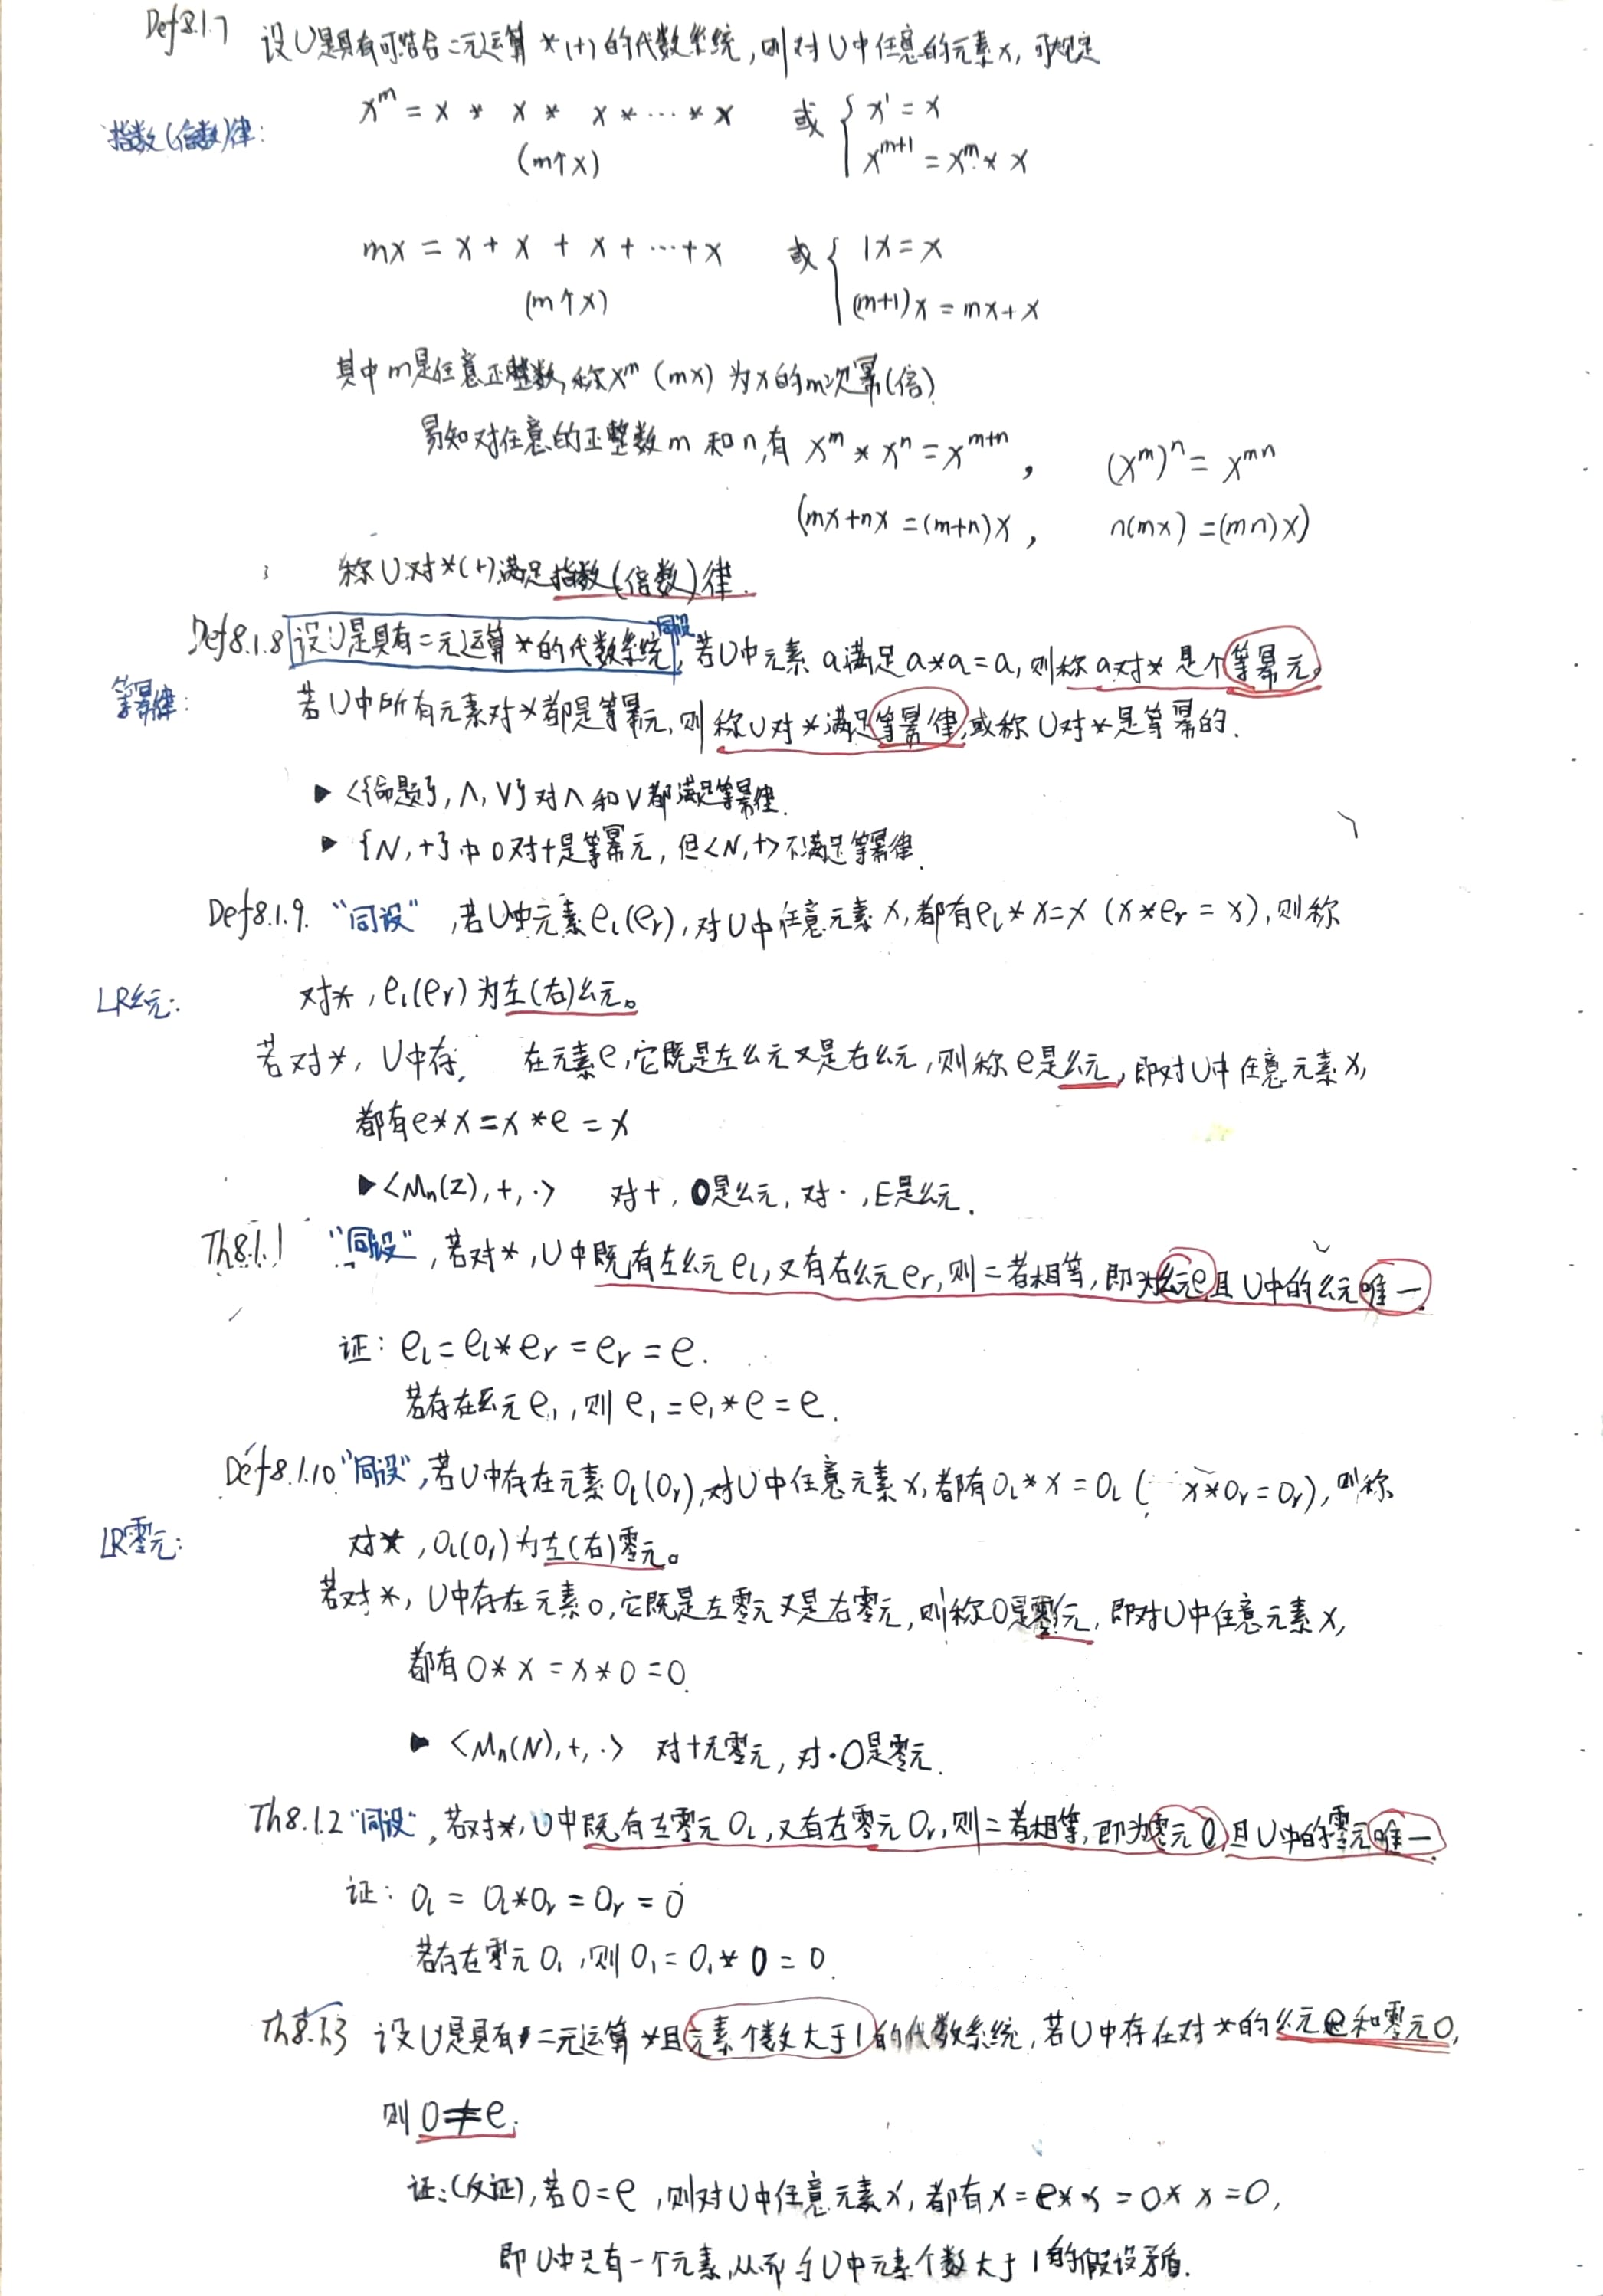 Def8.1.7 设U是具有可结合二元运算*(+)的代数系统,则对U中任意的元素x,可规定
指数(倍数)律:
x^m = x * x * x * ⋯ * x 或 { x^1 = x
(m个x) x^{m+1} = x^m * x
mx = x + x + x + ⋯ + x 或 { 1x = x
(m个x) (m+1)x = mx + x
其中m是任意正整数,称x^m (mx) 为x的m次幂(倍).
易知对任意的正整数m和n,有 x^m * x^n = x^{m+n}, (x^m)^n = x^{mn}
(mx+nx = (m+n)x, n(mx) = (mn)x)
称U对*(+)满足指数(倍数)律.
Def8.1.8 设U是具有二元运算*的代数系统 同设, 若U中元素a满足a*a=a, 则称a对*是个等幂元。
等幂律:
若U中所有元素对*都是等幂元,则称U对*满足等幂律,或称U对*是等幂的.
▶ <{命题}, ∧, ∨} 对∧和∨都满足等幂律.
▶ {N,+}中0对+是等幂元, 但<N,+>不满足等幂律.
Def8.1.9. “同设”, 若U中元素e_l(e_r), 对U中任意元素x, 都有e_l*x=x (x*e_r=x), 则称
LR幺元:
对*, e_l(e_r)为左(右)幺元。
若对*, U中存 在元素e,它既是左幺元又是右幺元,则称e是幺元, 即对U中任意元素x,
都有e*x=x*e=x
▶<M_n(Z),+,·> 对+, 0是幺元, 对·, E是幺元.
Th8.1.1 “同设”, 若对*, U中既有左幺元e_l, 又有右幺元e_r, 则二者相等, 即为幺元e且U中的幺元唯一.
证: e_l = e_l*e_r = e_r = e.
若存在幺元e_1, 则e_1 = e_1*e = e.
Def8.1.10 “同设”, 若U中存在元素0_l(0_r), 对U中任意元素x, 都有0_l*x=0_l ( x*0_r=0_r), 则称
LR零元:
对*, 0_l(0_r)为左(右)零元。
若对*, U中存在元素0,它既是左零元又是右零元, 则称0是零元, 即对U中任意元素x,
都有0*x=x*0=0.
▶ <M_n(N),+,·> 对+无零元, 对·0是零元.
Th8.1.2 “同设”, 若对*, U中既有左零元0_l, 又有右零元0_r, 则二者相等, 即为零元0, 且U中的零元唯一.
证: 0_l = 0_l*0_r = 0_r = 0
若存在零元0_1, 则0_1 = 0_1*0 = 0.
Th8.1.3 设U是具有二元运算*且元素个数大于1的代数系统, 若U中存在对*的幺元e和零元0,
则 0≠e.
证:(反证), 若0=e, 则对U中任意元素x, 都有x=e*x=0*x=0,
即U中只有一个元素,从而与U中元素个数大于1的假设矛盾.